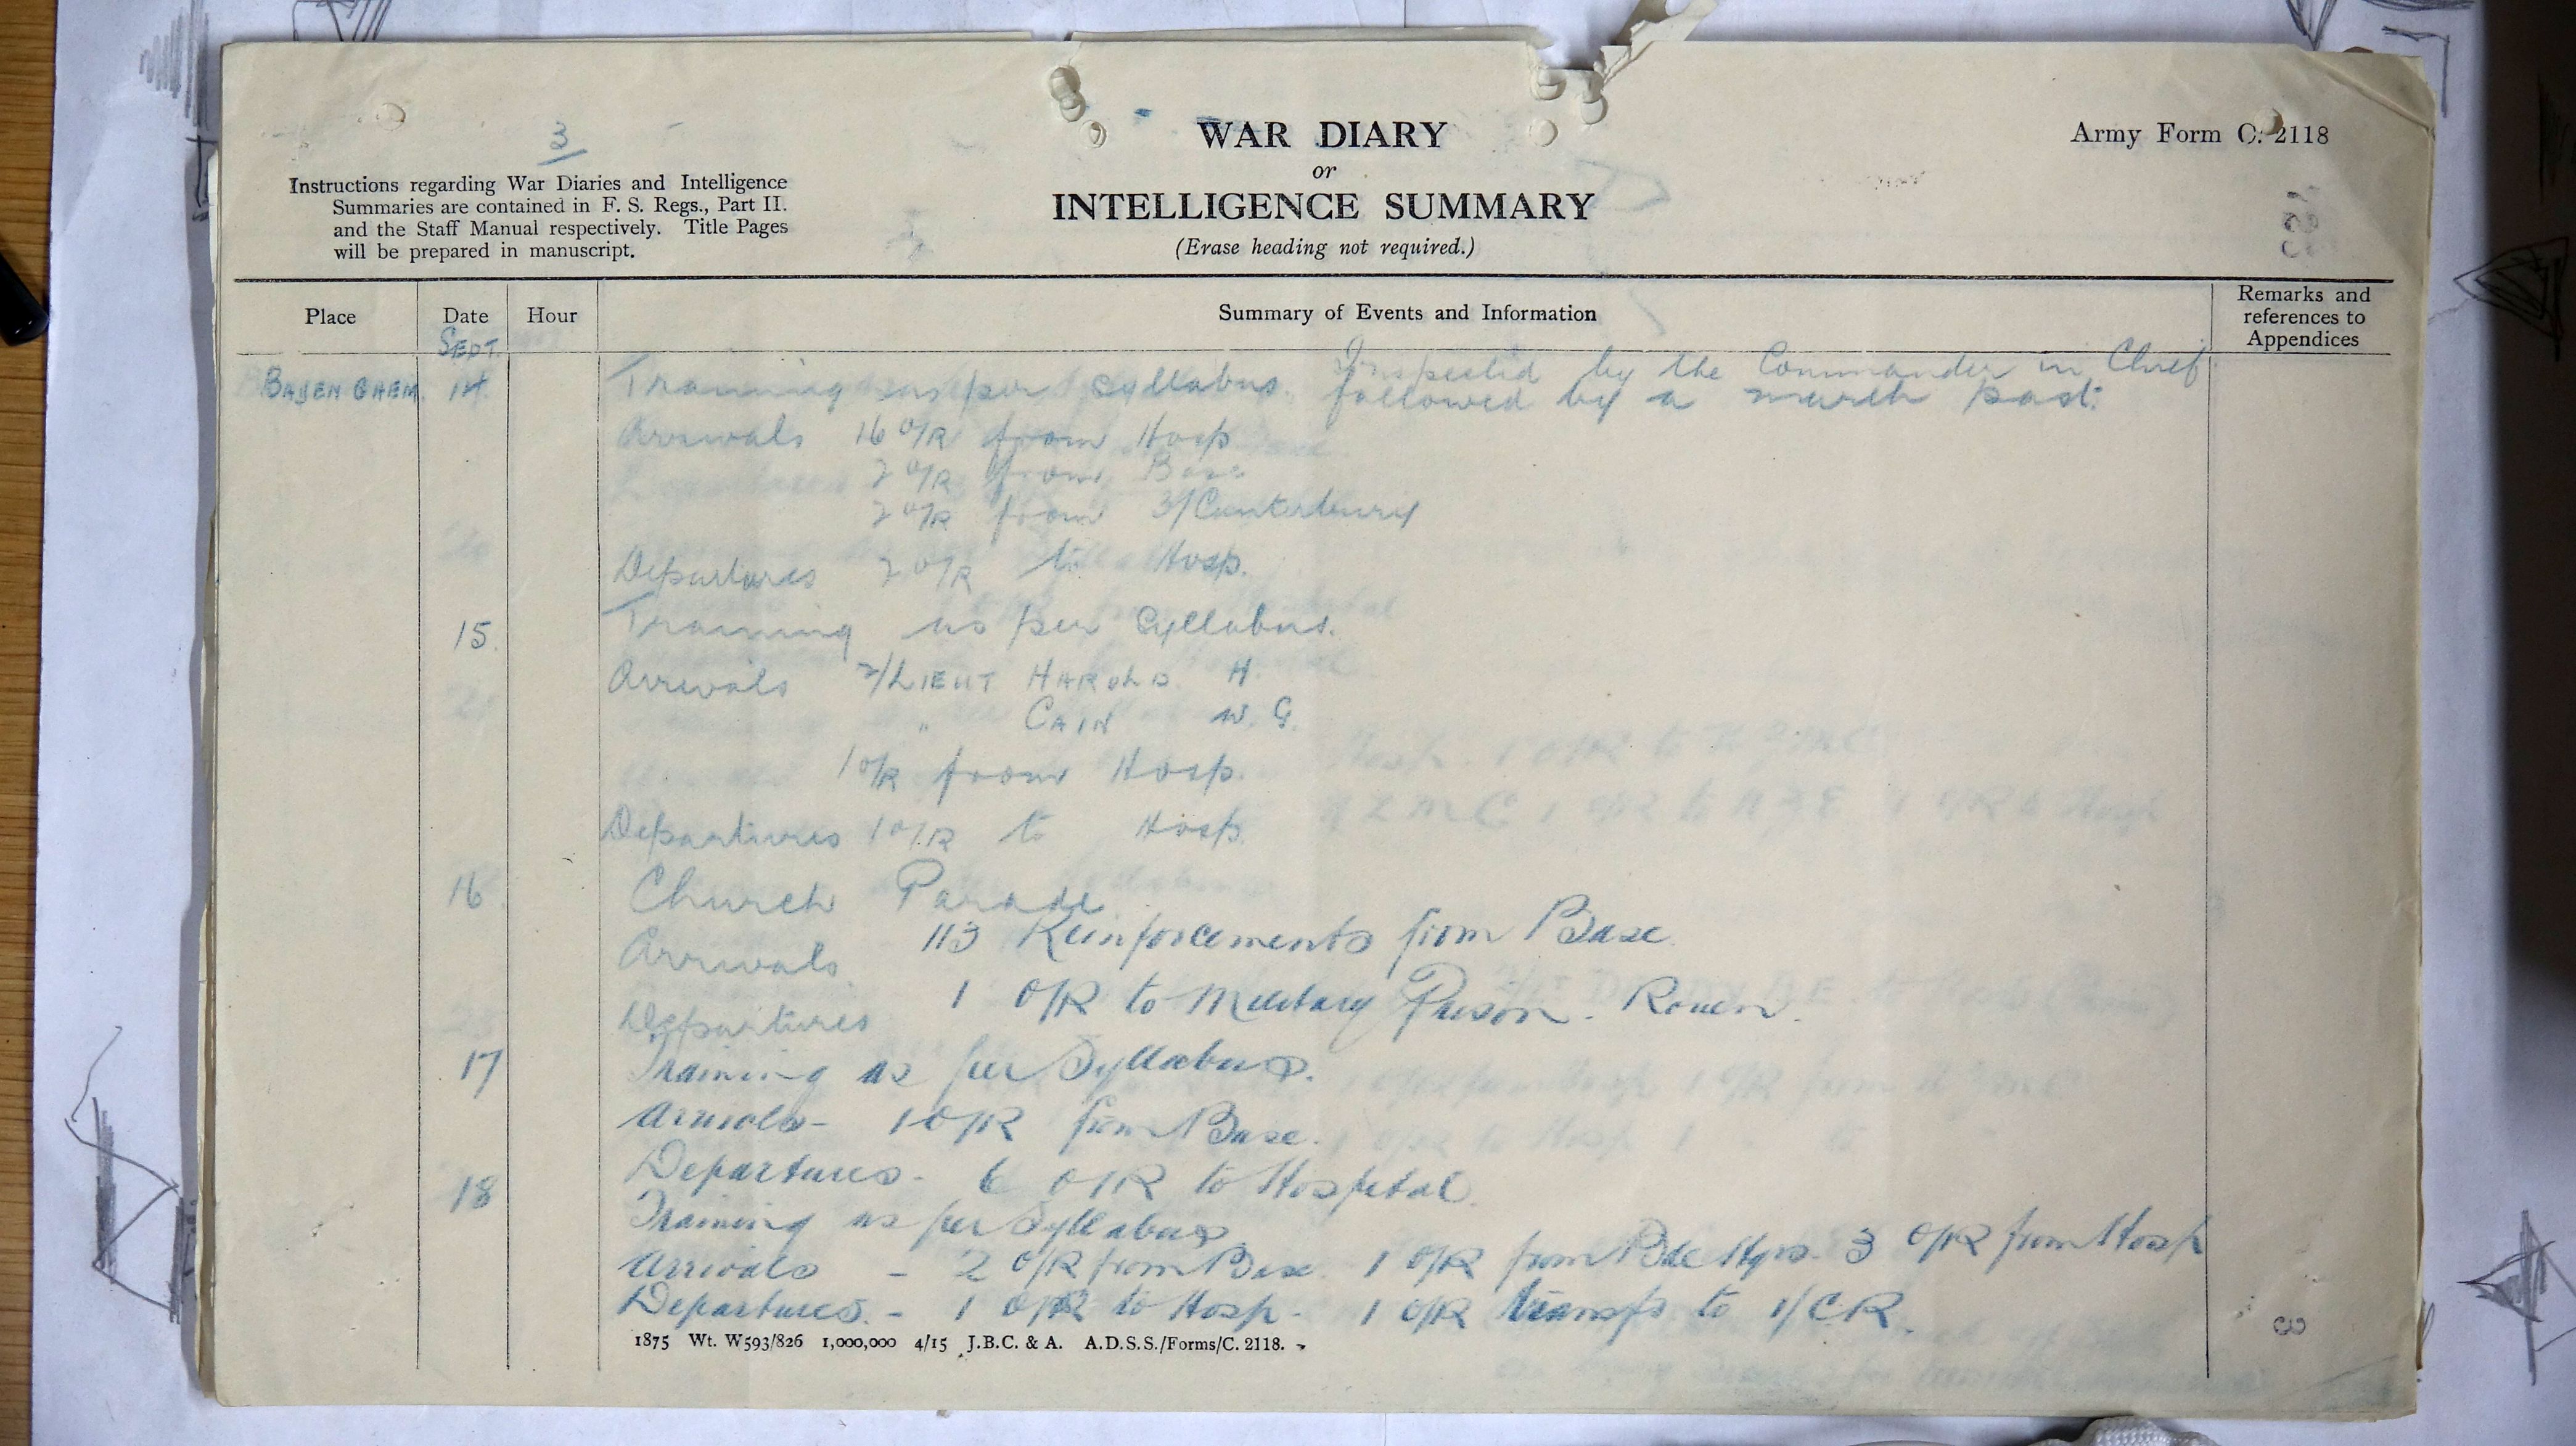 3
WAR DIARY
or
INTELLIGENCE SUMMARY
(Erase heading not required.)
Army Form C. 2118
Instructions regarding War Diaries and Intelligence
Summaries are contained in F. S. Regs., Part II.
and the Staff Manual respectively. Title Pages
will be prepared in manuscript.
Place Date Hour Summary of Events and Information Remarks and references to Appendices
SEPT.
14 Training as per syllabus. Inspected by the Commander in Chief
followed by a march past.
Arrivals 16 O/R from Hosp
2 O/R from Base
2 O/R from 3/Canterbury
Departures 2 O/R to Hosp.
15. Training as per Syllabus.
Arrivals 2/LIEUT HAROLD H.
" CAIN W. G.
1 O/R from Hosp.
Departures 1 O/R to Hosp
16 Church Parade
Arrivals 113 Reinforcements from Base
Departures 1 O/R to Military Prison. Rouen.
17 Training as per Syllabus.
Arrivals- 1 O/R from Base.
Departures- 6 O/R to Hospital.
18 Training as per Syllabus
Arrivals - 2 O/R from Base 1 O/R from Bde Hqrs. 3 O/R from Hosp
Departures. - 1 O/R to Hosp- 1 O/R transfs to 1/CR.
1875 Wt. W593/826 1,000,000 4/15 J.B.C. & A. A.D.S.S./Forms/C. 2118.